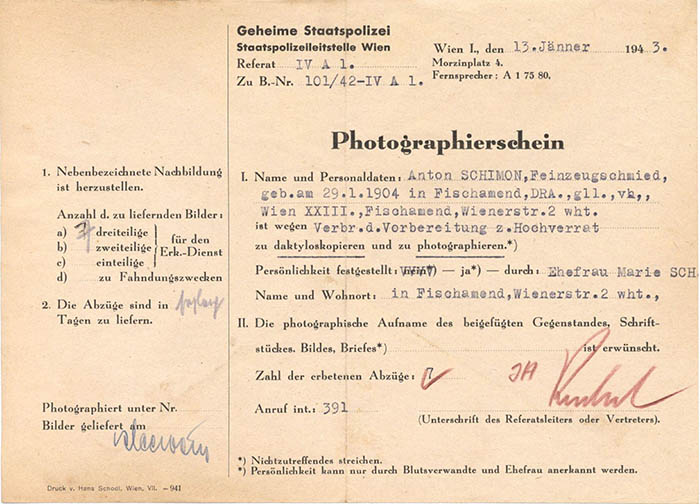 Geheime Staatspolizei
Staatspolizeileitstelle Wien
Referat IV A 1.
Zu B.-Nr. 101/42-IV A 1.
Wien I., den 13.Jänner 1943.
Morzinplatz 4.
Fernsprecher: A 1 75 80.
Photographierschein
1. Nebenbezeichnete Nachbildung
ist herzustellen.
Anzahl d. zu liefernden Bilder:
a) 7 dreiteilige
b) zweiteilige
c) einteilige
für den
Erk.-Dienst
d) zu Fahndungszwecken
2. Die Abzüge sind in
Tagen zu liefern.
Photographiert unter Nr.
Bilder geliefert am
I. Name und Personaldaten: Anton SCHIMON,Feinzeugschmied,
geb.am 29.1.1904 in Fischamend,DRA.,gll.,vh.,
Wien XXIII.,Fischamend,Wienerstr.2 wht.
ist wegen Verbr.d.Vorbereitung z.Hochverrat
zu daktyloskopieren und zu photographieren.*)
Persönlichkeit festgestellt: nein*) — ja*) — durch: Ehefrau Marie SCH
Name und Wohnort: in Fischamend,Wienerstr.2 wht.,
II. Die photographische Aufname des beigefügten Gegenstandes, Schrift-
stückes. Bildes, Briefes*) ist erwünscht.
Zahl der erbetenen Abzüge: 7
Anruf int.: 391
(Unterschrift des Referatsleiters oder Vertreters).
*) Nichtzutreffendes streichen.
*) Persönlichkeit kann nur durch Blutsverwandte und Ehefrau anerkannt werden.
Druck v. Hans Schodl, Wien, VII. — 941